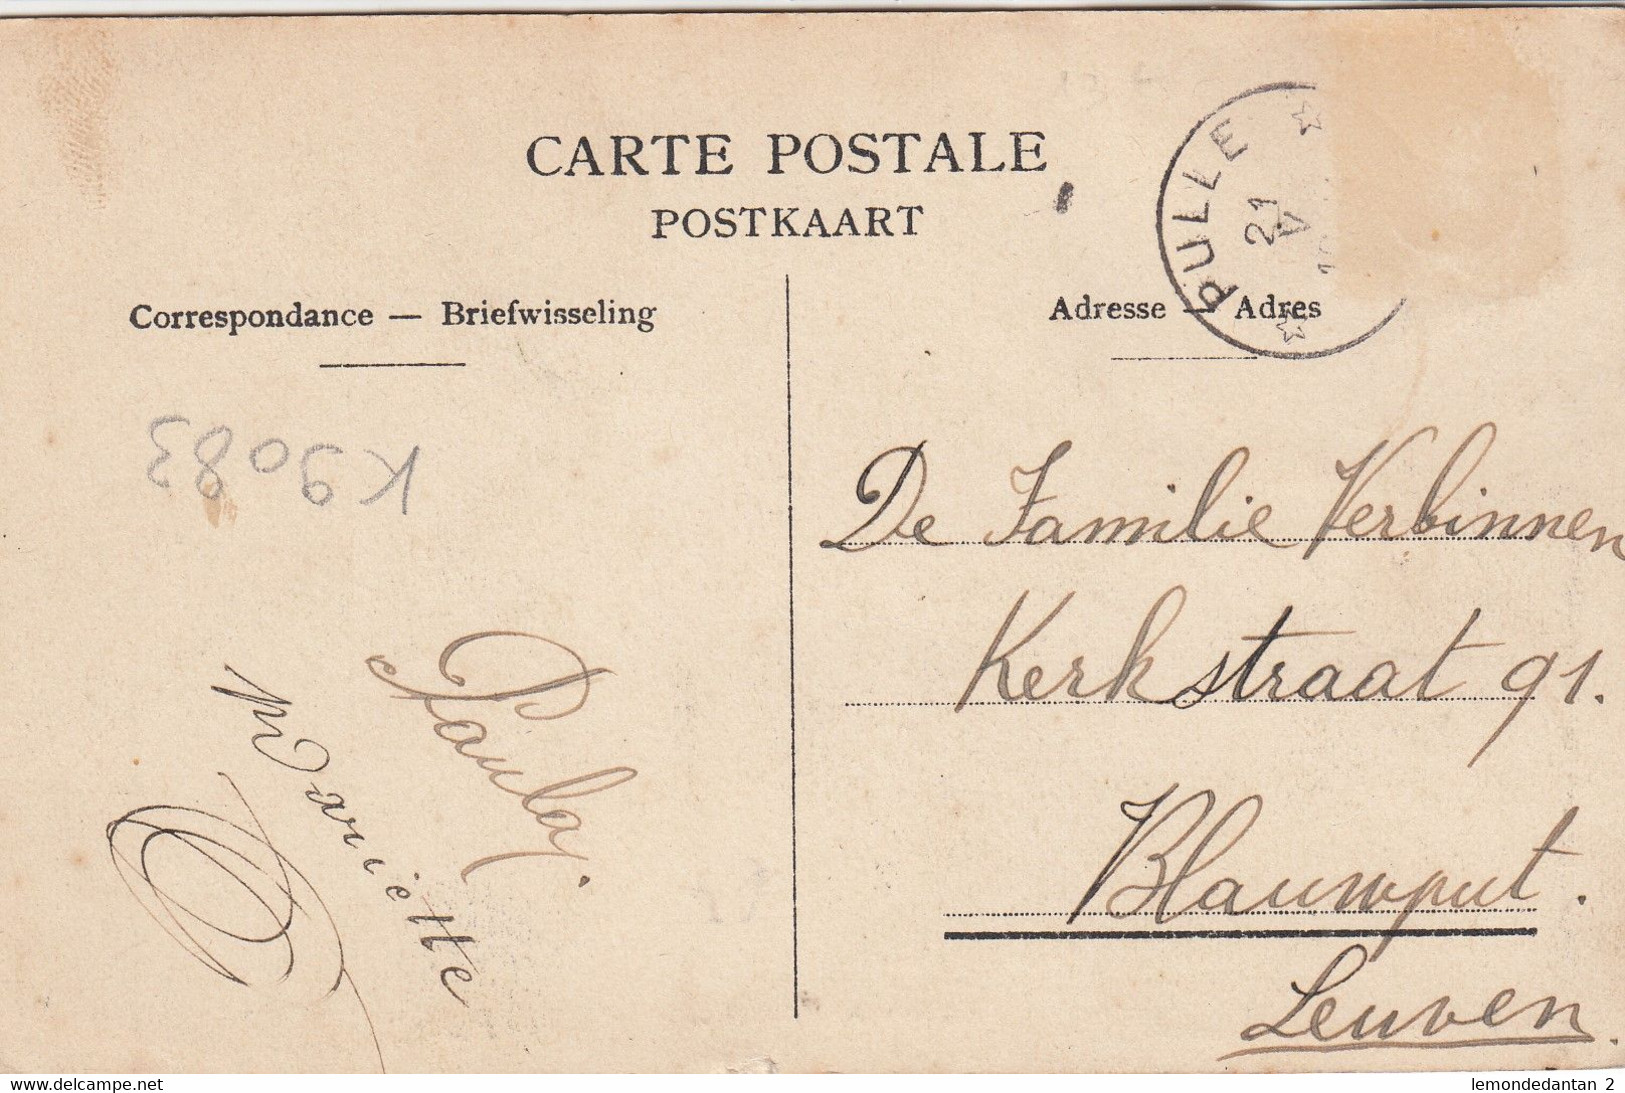 CARTE POSTALE
POSTKAART
Correspondance — Briefwisseling
Adresse — Adres
PULLE
21
V
K9083
De Familie Verbinnen
Kerkstraat 91.
Blauwput.
Leuven.
Paula.
Mariette
www.delcampe.net
lemondedantan 2